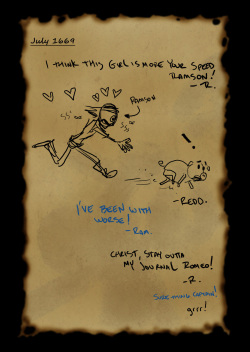 July 1669
I THINK THIS GIRL IS MORE YOUR SPEED
RAMSON!
-R.
RAMSON
!
-REDD.
I'VE BEEN WITH
WORSE!
-Ram.
CHRIST, STAY OUTTA
MY JOURNAL ROMEO!
-R.
SURE THING CAPTAIN!
grrr!